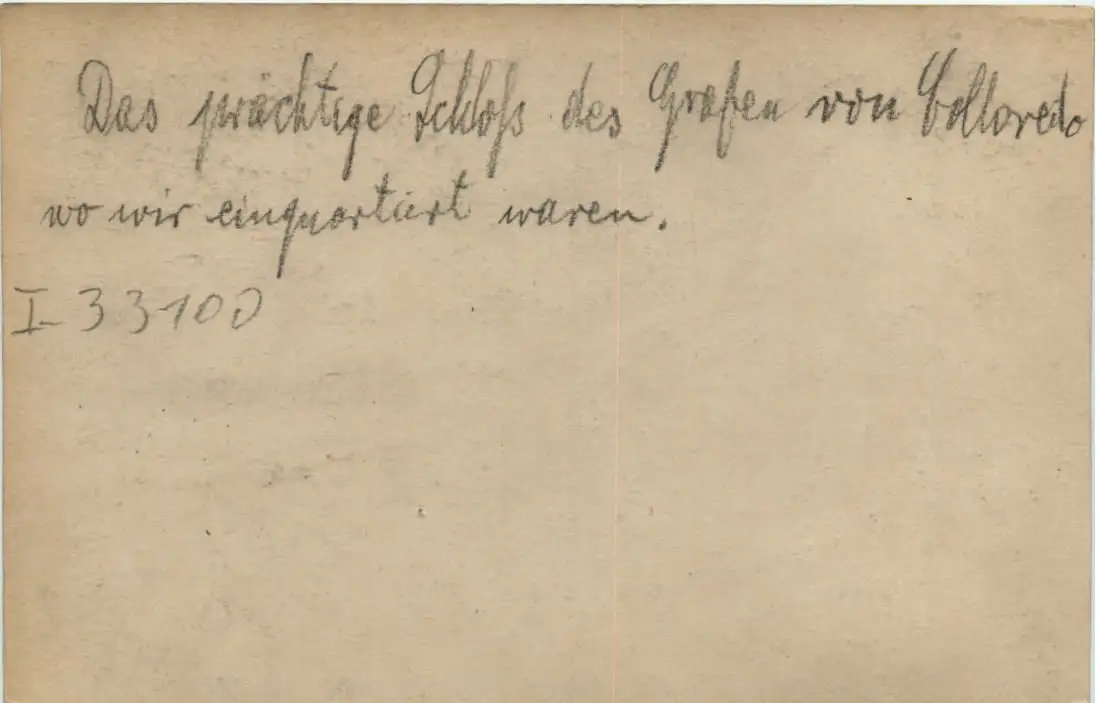 Das prächtige Schloß des Grafen von Colloredo
wo wir einquartiert waren.
I-33100